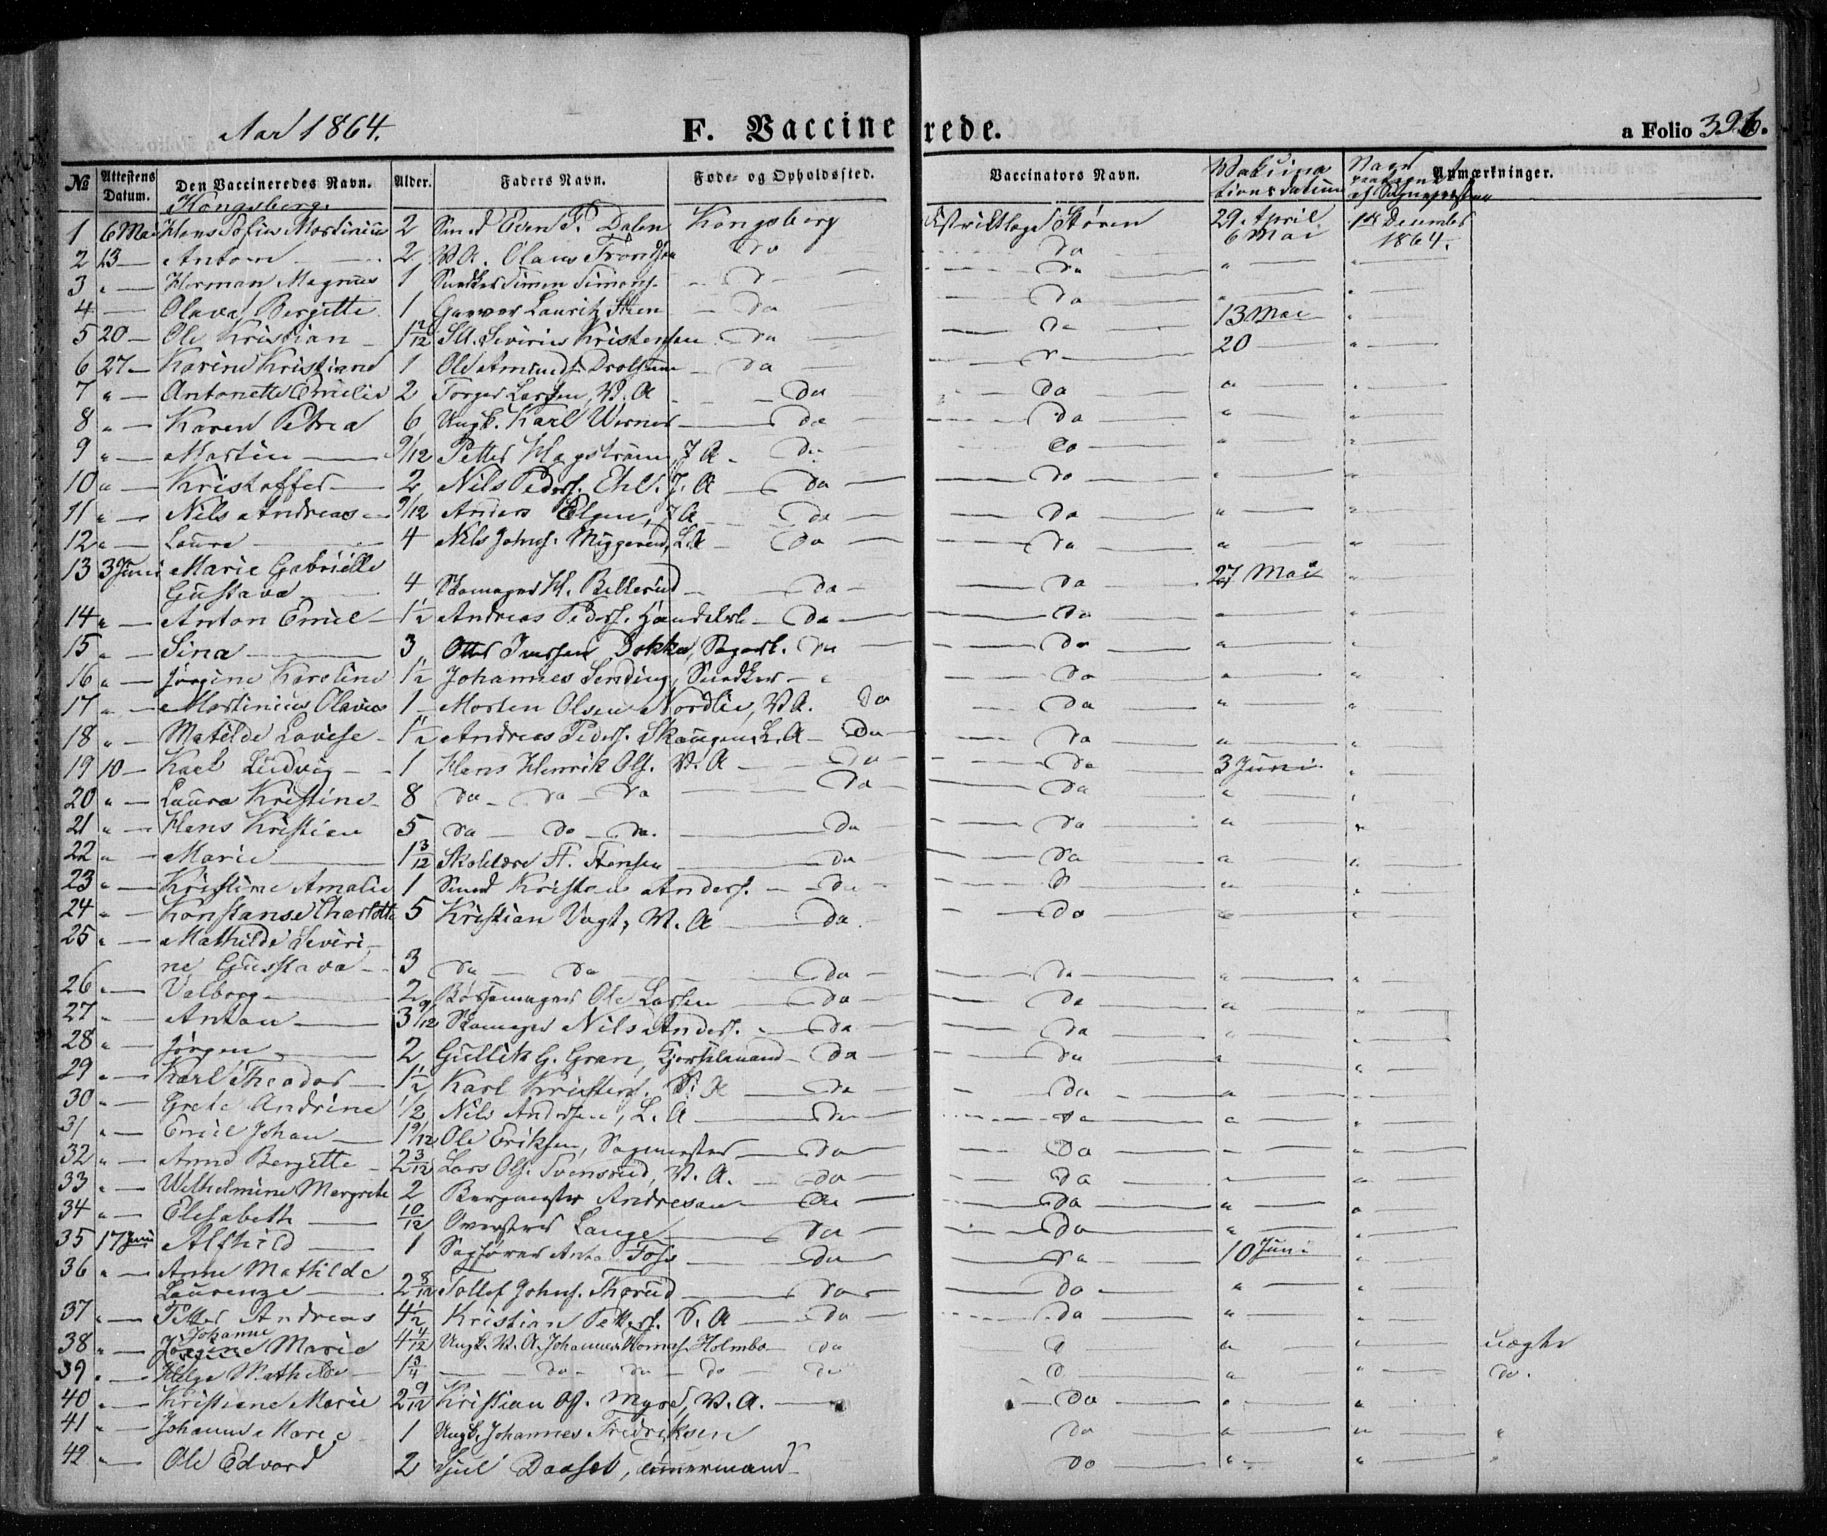 Aar 1864. F. Vaccinerede. a Folio 396.
No Attestens Datum. Den Vaccineredes Navn. Alder. Faders Navn. Føde- og Opholdssted. Vaccinators Navn. Vakcinationsdatum Naar Anmærkninger.
Kongsberg.
1 6 Mai Hans Sofius Martinius 2 Smed Even P. Dalen Kongsberg Støren 29 April 18 December
2 13 — Anton — 2 V. A. Olaus Trondsen do do 6 Mai 1864.
3 " — Herman Magnus 1 Snedker Simen Simens. — D — do " "
4 — Olava Bergitte 1 Garver Lauritz Steen — do do " "
5 20 — Ole Kristian — 1 11/12 Severin Kristensen do do 13 Mai "
6 27 — Karine Kristiane 1 Ole Amunds. Drolsum — do 20 "
7 " — Antonette Emilie 2 Torger Larsen, V. A — do do " "
8 " — Karen Petrea 6 Ungk. Karl Werner — do do " "
9 " — Martin — 9/12 Petter Hagstrøm, J A — do do " "
10 " — Kristoffer — 2 Nils Peders. Ehl. J. A — do do " "
11 " — Nils Andreas — 9/12 Anders Elgen, J A — do do " "
12 " — Laura — 4 Nils Johns. Muggerud, L. A — do do " "
13 3 Juni Marie Gabrielle
Gustava — 4 Skomager H. Bekkerud — do — do 27 Mai "
14 " — Anton Emil — 1 1/2 Andreas Peders. Handelsb. — do — do " "
15 " — Sina — 3 Otter Iversen Dokka, Sagarb. do do " "
16 " — Jørgine Karoline 1 1/2 Johannes Sending, Snedker — " do " "
17 " — Martinius Olavus 1 — Morten Olsen Nordlie, V. A. do do " "
18 " — Matilde Lovise — 1 1/2 Andreas Peders. Skaugen, L. A — do — do " "
19 10 — Karl Ludvig — 1 Hans Henrik Ols. V. A — do do 3 Juni "
20 " — Laura Kristine — 8 do — do — do — do — do " "
21 " — Hans Kristian 5 do — do — do. — do do " "
22 " — Marie — 1 3/12 Skolelærer H. Hansen — do do " "
23 " — Kristine Amalie 1 Smed Kristen Anders. — do — " "
24 " — Konstanse Charlotte 5 Kristian Vogt, V. A — do. do " "
25 " — Mathilde Severi-
ne Gustava — 3 do — do — do — do " "
26 " — Valborg — 2 Bøssemager Ole Larsen — do — do " "
27 " — Anton — 3 9/12 Skomager Nils Anders. — do — do " "
28 " — Jørgen — 2 Gullik G. Gran, Kjørselsmand — do — do " "
29 " — Karl Theodor — 1 1/2 Karl Kristens. V. A — do do " "
30 " — Grete Andrine 1/2 Nils Andersen, L. A — do — do " "
31 " — Emil Johan — 1 9/12 Ole Eriksen, Sagmester — do do " "
32 " — Anne Bergitte — 2 3/12 Lars Ols. Svensrud, V. A. — do — do " "
33 " — Wilhelmine Margrete 2 Bergmester Andresen — do do " "
34 " — Elisabeth — 10/12 Overstiger Lange — do — do " "
35 17 Juni Alfhild — 1 Sagfører Anton Foss — do — do 10 Juni "
36 " — Anne Mathilde
Laurenze — 2 8/12 Tollef Johns. Thorud — do — do " "
37 " — Petter Andreas 4 1/2 Kristian Petters. V. A — do — do " "
38 " — Johanne
Jørgine Marie 4 4/12 Ungk. V. A. Johannes Thomas. Holmbo — do " " uægte
39 " — Helga Mathilde — 1 3/4 — do — do — do do " " do.
40 " — Kristiane Marie 2 9/12 Kristian Ols. Myre, V. A. — do " "
41 " — Johanne Marie 1 Ungk. Johannes Fredriksen do " " "
42 " — Ole Edvard 2 Kjul Daaset, Tømmermand do " " "